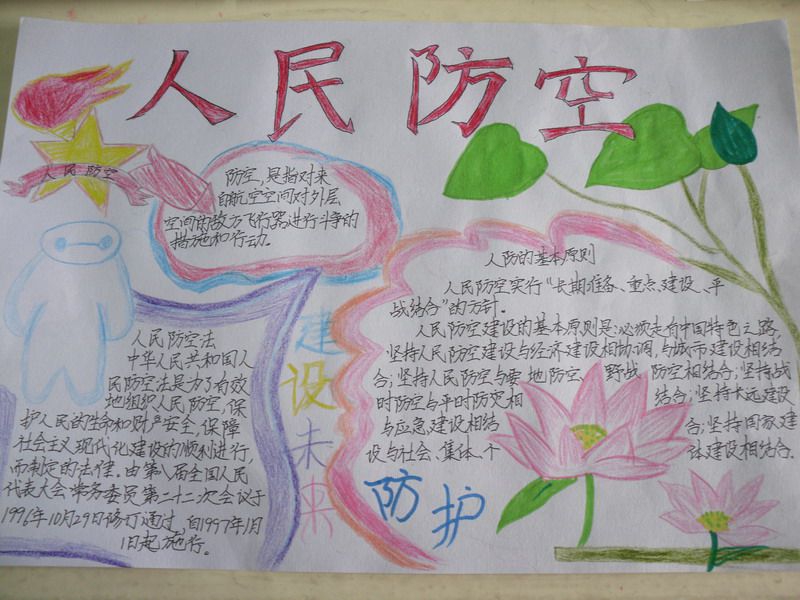 人民防空
人民防空
防空,是指对来
自航空空间对外层
空间的敌方飞行器进行斗争的
措施和行动。
人防的基本原则
人民防空实行“长期准备、重点建设、平
战结合”的方针。
人民防空建设的基本原则是:必须走有中国特色之路,
坚持人民防空建设与经济建设相协调,与城市建设相结
合;坚持人民防空与要地防空、野战 防空相结合;坚持战
时防空与平时防灾相 结合;坚持长远建设
与应急建设相结 合;坚持国家建
设与社会、集体、个 体建设相结合.
人民防空法
中华人民共和国人
民防空法是为了有效
地组织人民防空,保
护人民的生命和财产安全,保障
社会主义现代化建设的顺利进行,
而制定的法律。由第八届全国人民
代表大会常务委员第二十二次会议于
1996年10月29日修订通过,自1997年1月
1日起施行。
建设未来
防护